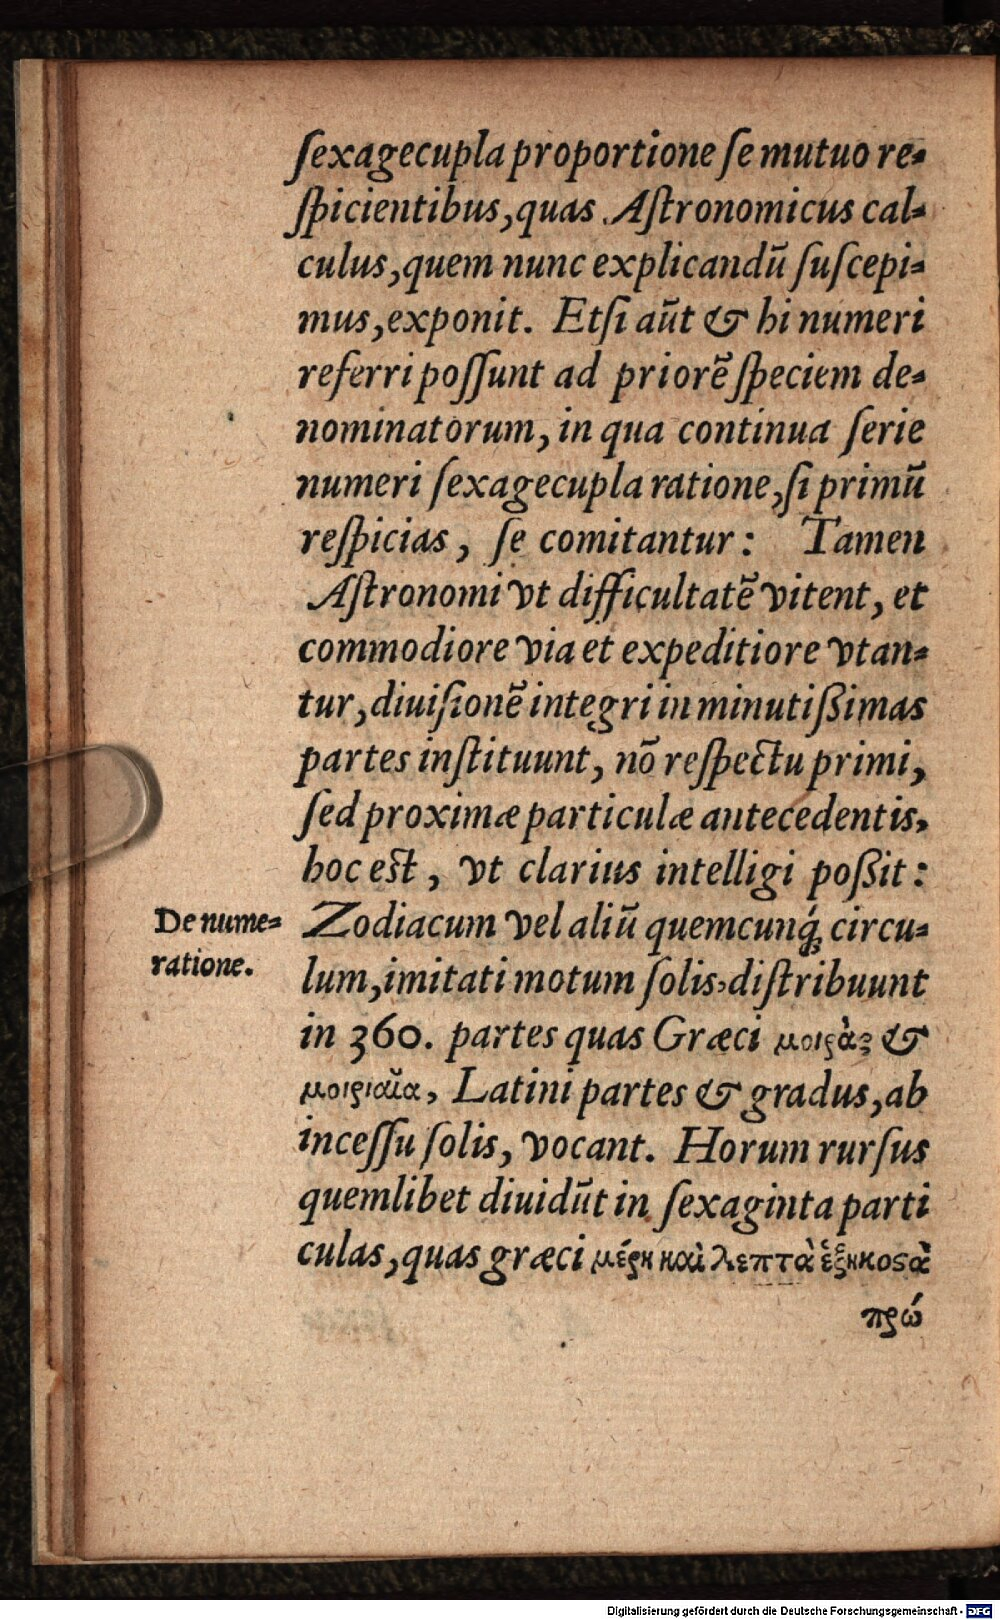 ſexagecupla proportione ſe mutuo re-
ſpicientibus, quas Aſtronomicus cal-
culus, quem nunc explicandū ſuſcepi-
mus, exponit. Etſi aūt & hi numeri
referri poſſunt ad priorē ſpeciem de-
nominatorum, in qua continua ſerie
numeri ſexagecupla ratione, ſi primū
reſpicias, ſe comitantur: Tamen
Aſtronomi vt difficultatē vitent, et
commodiore via et expeditiore vtan-
tur, diuiſionē integri in minutißimas
partes inſtituunt, nō reſpectu primi,
ſed proximæ particulæ antecedentis,
hoc eſt, vt clarius intelligi poßit:
De nume-
ratione.
Zodiacum vel aliū quemcunq́; circu-
lum, imitati motum ſolis, diſtribuunt
in 360. partes quas Græci μοιρὰς &
μοιριαῖα, Latini partes & gradus, ab
inceſſu ſolis, vocant. Horum rurſus
quemlibet diuidūt in ſexaginta parti
culas, quas græci μέρη καὶ λεπτὰ ἑξηκοςὰ
πρώ
Digitalisierung gefördert durch die Deutsche Forschungsgemeinschaft - DFG